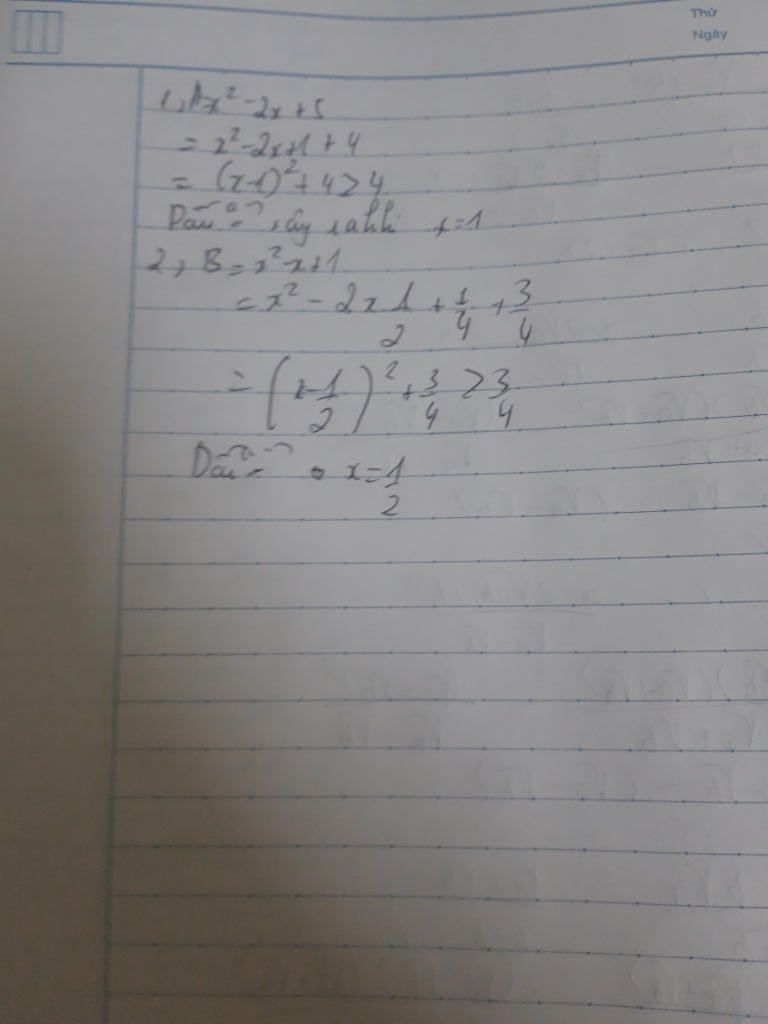 Thứ
Ngày
1, A x² - 2x + 5
= x² - 2x + 1 + 4
= (x-1)² + 4 ≥ 4
Dấu "=" xảy ra khi x = 1
2, B = x² - x + 1
= x² - 2x 1/2 + 1/4 + 3/4
= (x - 1/2)² + 3/4 ≥ 3/4
Dấu "=" x = 1/2